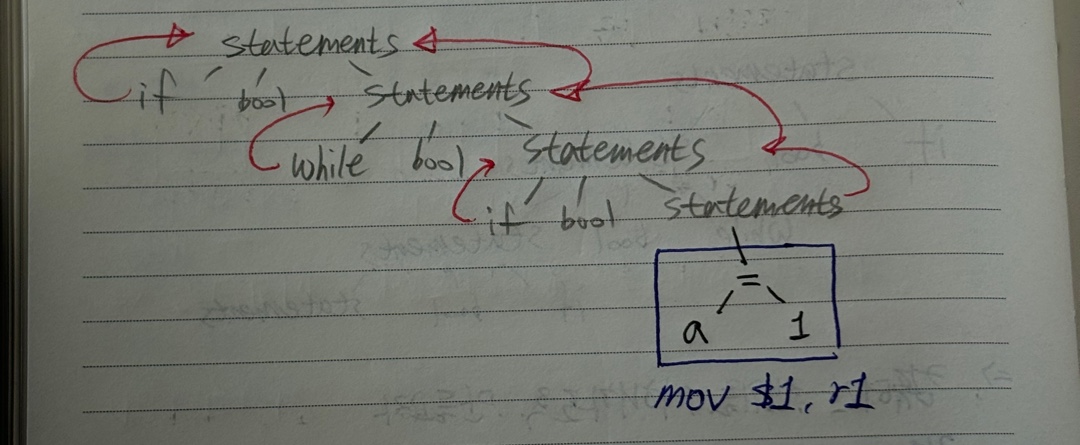 statements
if bool statements
while bool statements
if bool statements
=
a 1
mov $1, r1